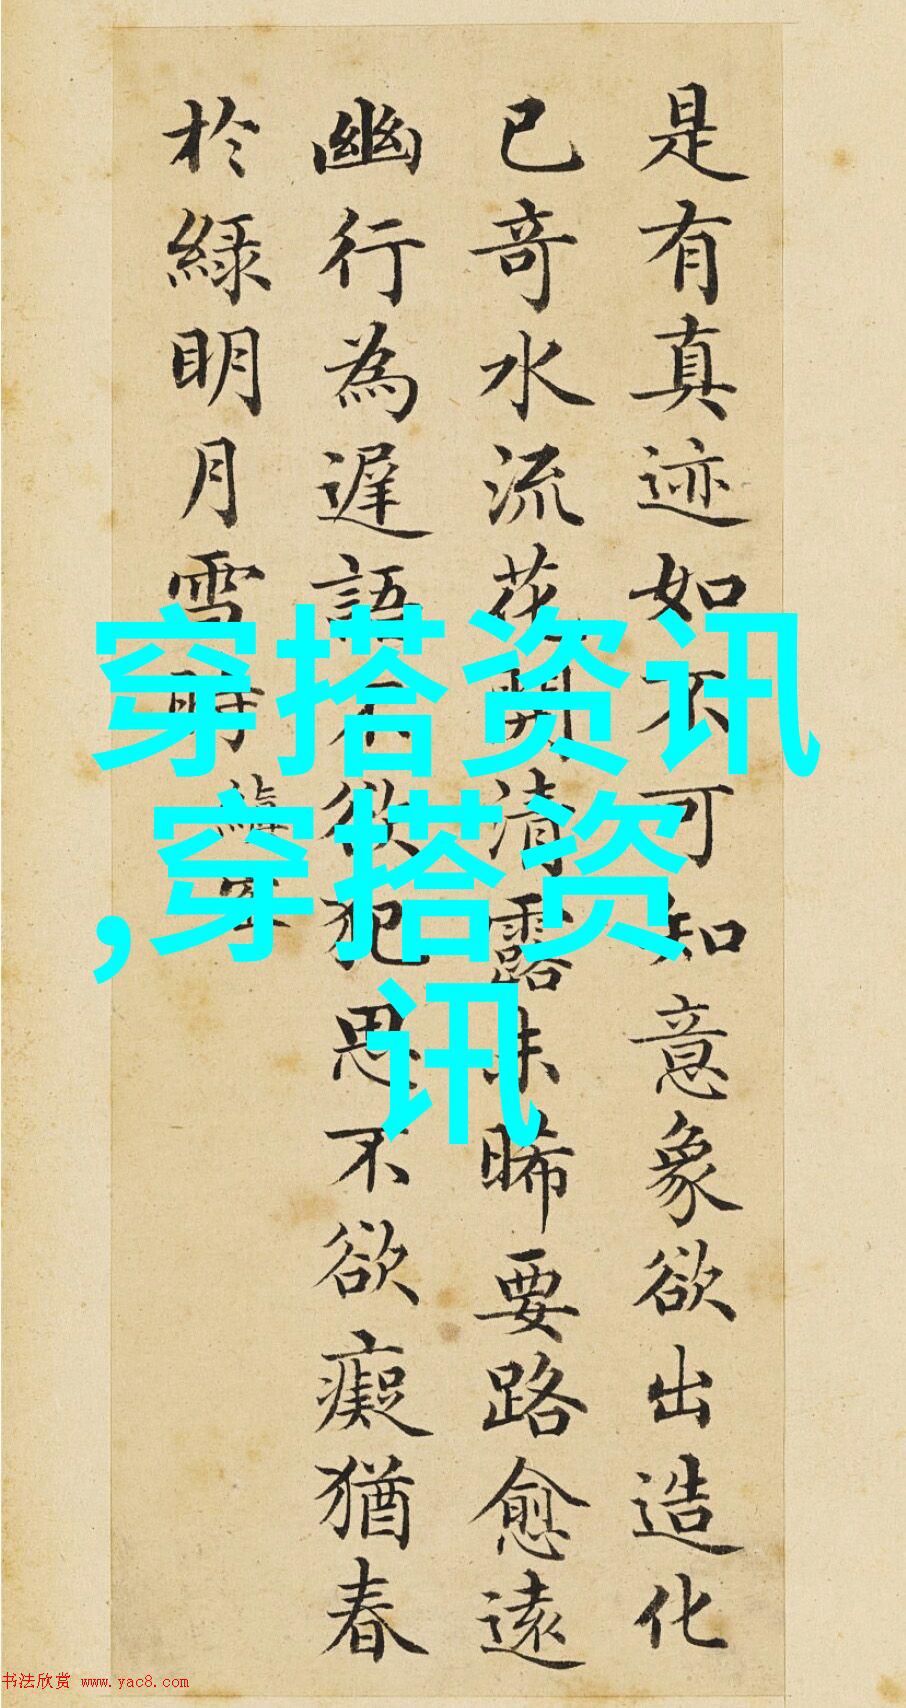 是有真迹如不可知意象欲出造化
已奇水流花開清露未晞要路愈遠
幽行為遲語不欲犯思不欲癡猶春
於綠明月雪時
縝密
穿搭资讯
,穿搭资
讯
书法欣赏 www.yac8.com